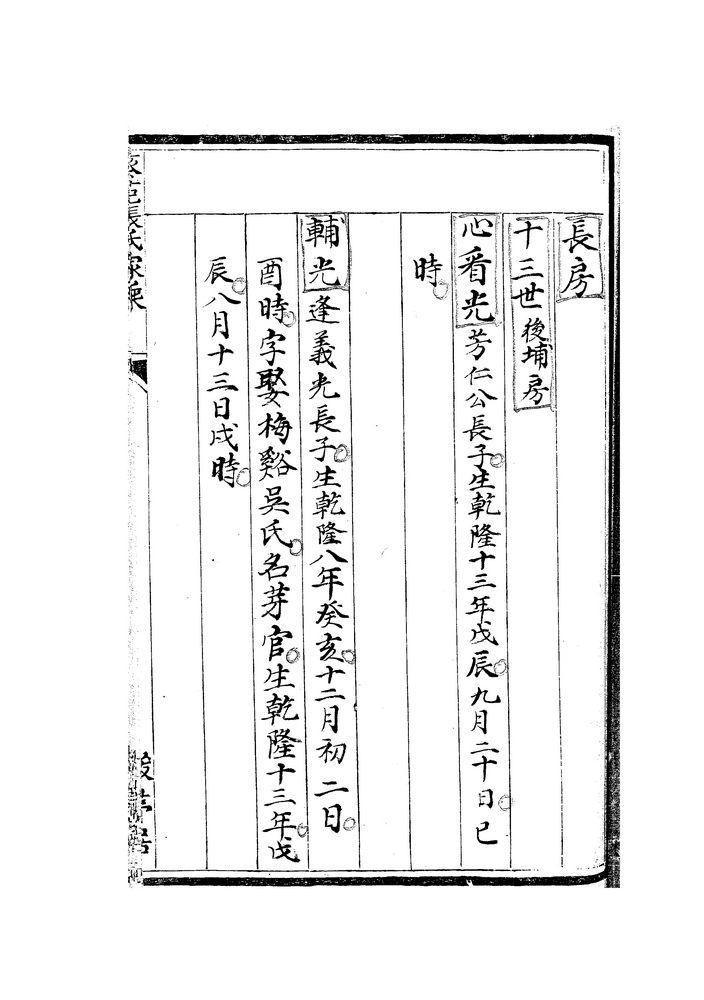 長房
十三世後埔房
心看光芳仁公長子生乾隆十三年戊辰九月二十日巳
時
輔光逢義光長子生乾隆八年癸亥十二月初二日
酉時字娶梅谿吳氏名芽官生乾隆十三年戊
辰八月十三日戌時
張氏家乘